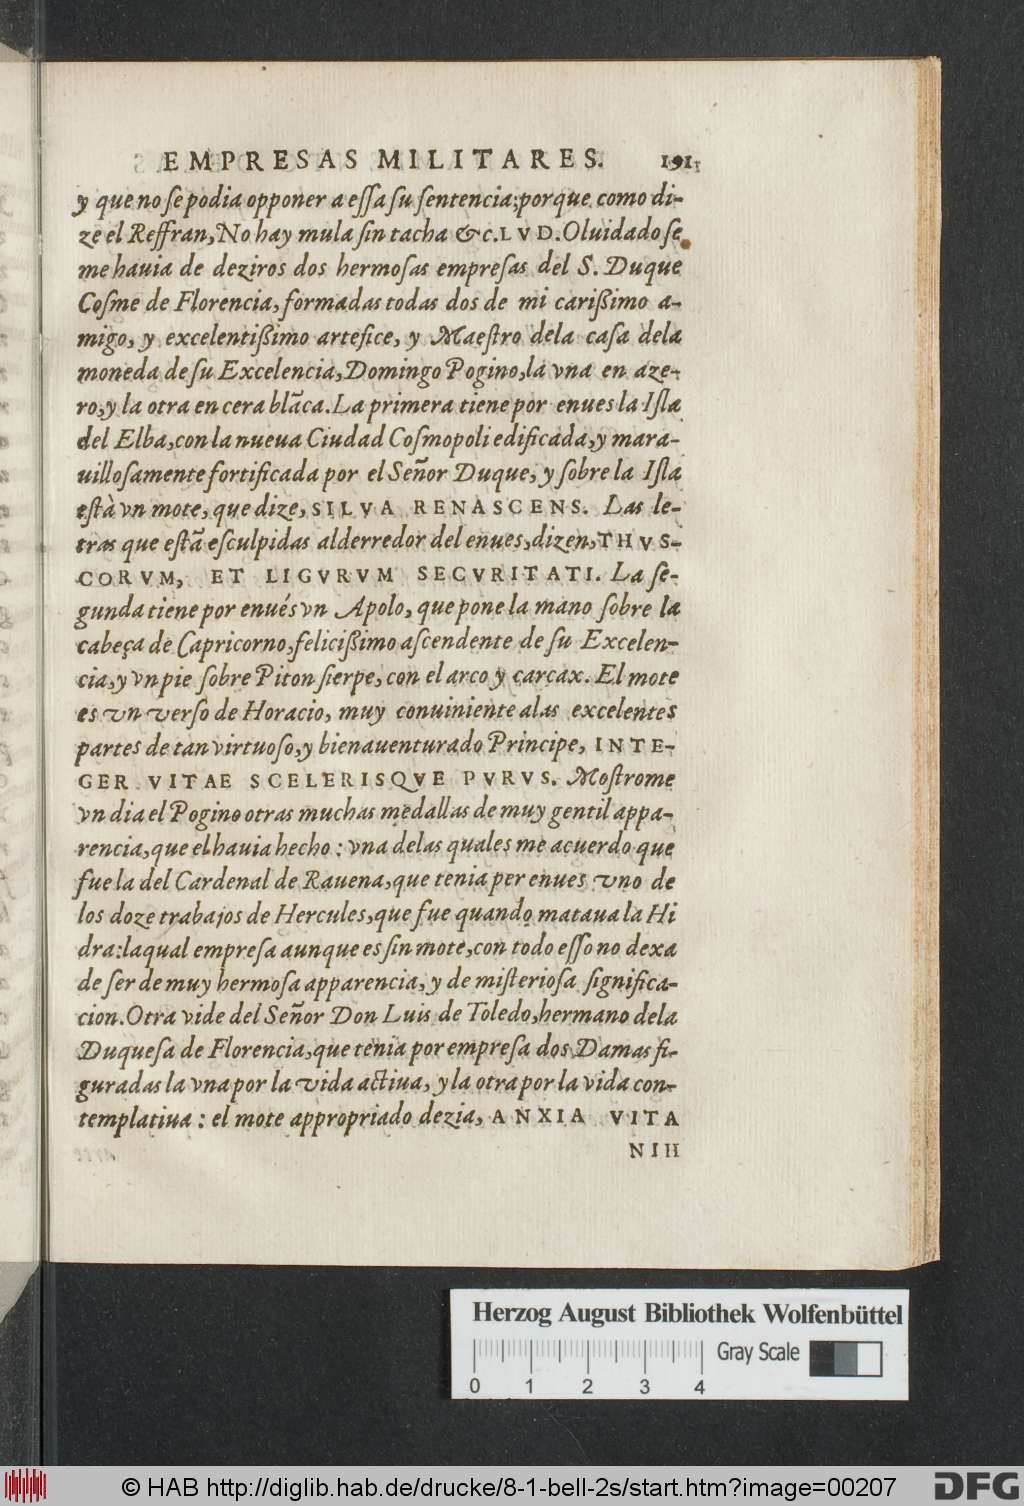 EMPRESAS MILITARES. 191
y que no se podia opponer a eſſa ſu ſentencia; porque como di-
ze el Reffran, No hay mula ſin tacha &c. LVD. Oluidado ſe
me hauia de deziros dos hermoſas empreſas del S. Duque
Coſme de Florencia, formadas todas dos de mi carißimo a-
migo, y excelentißimo artefice, y Maeſtro dela caſa dela
moneda de ſu Excelencia, Domingo Pogino, la vna en aze-
ro, y la otra en cera blãca. La primera tiene por enues la Iſla
del Elba, con la nueua Ciudad Coſmopoli edificada, y mara-
uilloſamente fortificada por el Señor Duque, y ſobre la Iſla
eſtà vn mote, que dize, SILVA RENASCENS. Las le-
tras que eſtã eſculpidas alderredor del enues, dizen, THVS-
CORVM, ET LIGVRVM SECVRITATI. La ſe-
gunda tiene por enués vn Apolo, que pone la mano ſobre la
cabeça de Capricorno, felicißimo aſcendente de ſu Excelen-
cia, y vn pie ſobre Piton ſierpe, con el arco y carcax. El mote
es vn verſo de Horacio, muy conuiniente alas excelentes
partes de tan virtuoſo, y bienauenturado Principe, INTE-
GER VITAE SCELERISQVE PVRVS. Moſtrome
vn dia el Pogino otras muchas medallas de muy gentil appa-
rencia, que el hauia hecho: vna delas quales me acuerdo que
fue la del Cardenal de Rauena, que tenia per enues vno de
los doze trabajos de Hercules, que fue quando mataua la Hi
dra: laqual empreſa aunque es ſin mote, con todo eſſo no dexa
de ſer de muy hermoſa apparencia, y de miſterioſa ſignifica-
cion. Otra vide del Señor Don Luis de Toledo, hermano dela
Duqueſa de Florencia, que tenia por empreſa dos Damas fi-
guradas la vna por la vida actiua, y la otra por la vida con-
templatiua: el mote appropriado dezia, ANXIA VITA
NIH
Herzog August Bibliothek Wolfenbüttel
Gray Scale
0 1 2 3 4
© HAB http://diglib.hab.de/drucke/8-1-bell-2s/start.htm?image=00207
DFG